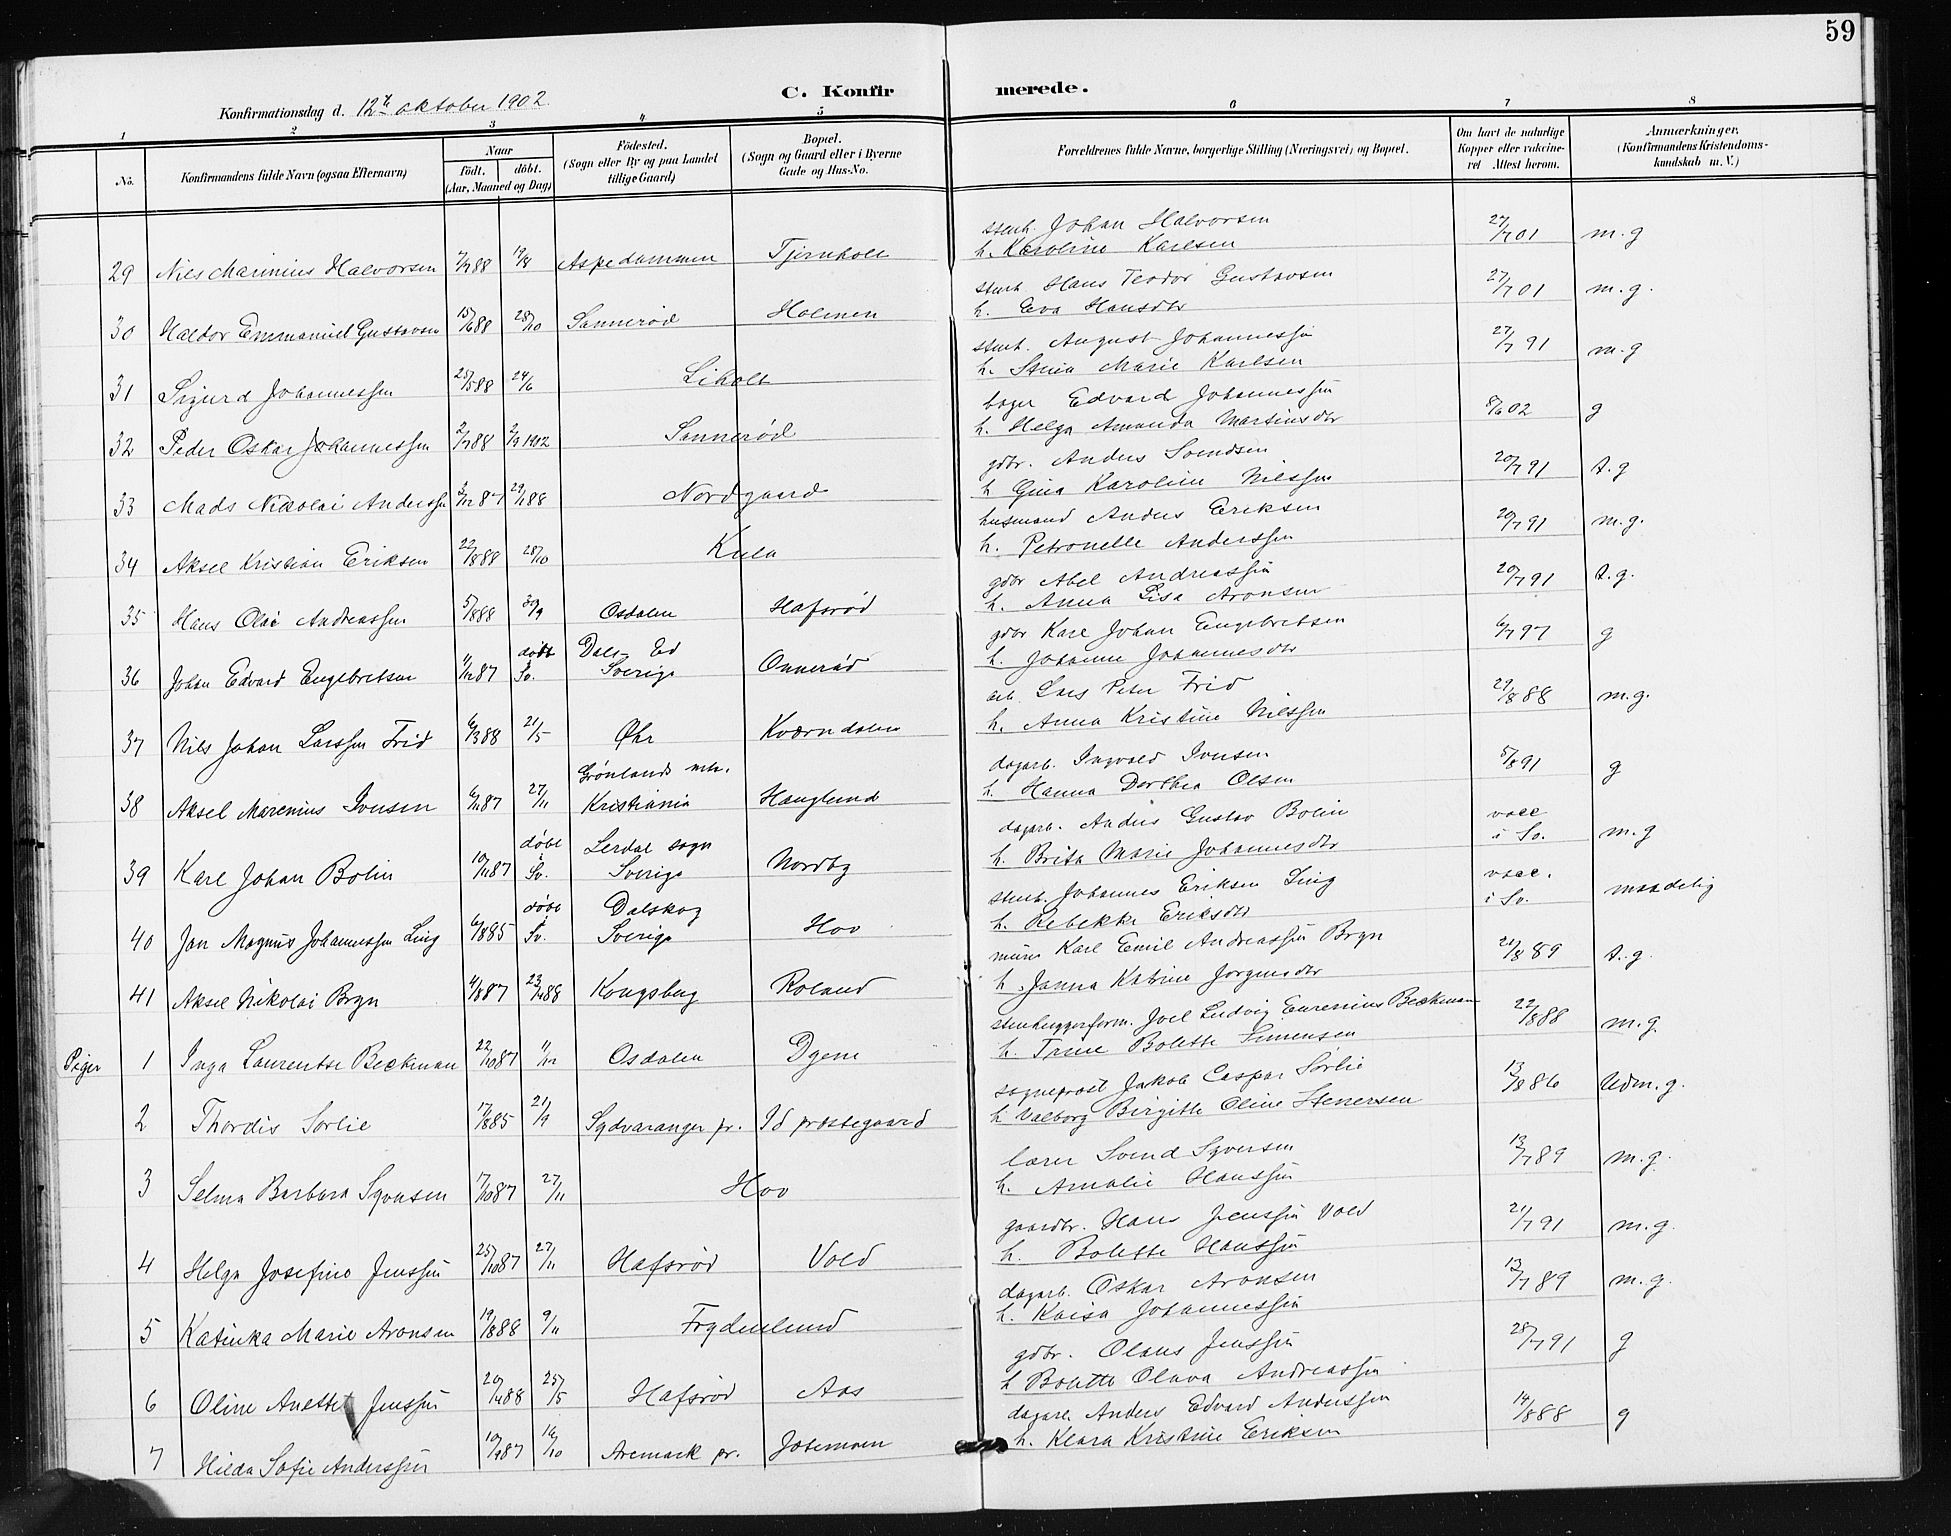 59
C. Konfirmerede.
Konfirmationsdag d. 12te oktober 1902.
1 2 3 4 5 6 7 8
No.
Konfirmandens fulde Navn (ogsaa Efternavn)
Naar
født. døbt.
(Aar, Maaned og Dag)
Fødested.
(Sogn eller By og paa Landet
tillige Gaard)
Bopæl.
(Sogn og Gaard eller i Byerne
Gade og Hus-No.
Forældrenes fulde Navne, borgerlige Stilling (Næringsvei) og Bopæl.
Om havt de naturlige
Kopper eller vakcine-
ret Attest herom.
Anmærkninger.
(Konfirmandens Kristendoms-
kundskab m. V.)
29 Nils Marinius Halvorsen 7/7 88 19/8 Aspedammen Tjernholt
stenh. Johan Halvorsen 27/7 01 m.g
h. Karoline Karlsen
30 Haldor Emmanuel Gustavsen 15/6 88 28/10 Sannerød Holmen
stenh. Hans Teodor Gustavsen 27/7 01 m.g.
h. Eva Hansdtr
31 Sigurd Johannessen 25/5 88 24/6 Liholt
stenh. August Johannessen 27/7 91 m.g
h. Stina Marie Karlsen
32 Peder Oskar Johannessen 2/7 88 2/9 1902 Sannerød
bager Edvard Johannessen 8/6 02 g
h. Helga Amanda Martinsdtr
33 Mads Nikolai Anderssen 3/12 87 29/1 88 Nordgaard
gdbr. Anders Svendsen 20/7 91 t.g
h Gina Karoline Nilssen
34 Aksel Kristian Eriksen 22/8 88 28/10 Kula
husmand Anders Eriksen 20/7 91 m.g.
h. Petronelle Anderssen
35 Hans Olai Andreassen 5/8 88 30/9 Osdalen Hafsrød
gdbr Abel Andreassen 20/7 91 t.g.
h. Anna Lisa Aronsen
36 Johan Edvard Engebretsen 11/12 87 døbt Sv. Dals-Ed Sverige Onnerød
gdbr Karl Johan Engebretsen 6/7 97 g
h. Johanne Johannesdtr
37 Nils Johan Larssen Frid 6/3 88 21/5 Øhr Kværndalen
arb. Lars Peter Frid 29/8 88 m.g.
h. Anna Kristine Nilssen
38 Aksel Marenius Iversen 6/11 87 27/11 Grønlands mh. Kristiania Hauglund
dagarb. Ingvald Iversen 5/8 91 g
h. Hanna Dorthea Olsen
39 Karl Johan Bolin 10/11 87 døbt i Sv. Lerdal sogn Sverige Nordby
dagarb. Anders Gustav Bolin vacc. i Sv. m.g
h. Brita Marie Johannesdtr
40 Jan Magnus Johannessen Ling 6/8 85 døbt Sv. Dalskog Sverige Hov
stenh. Johannes Eriksen Ling vacc. i Sv. maadelig
h. Rebekka Eriksdtr
41 Aksel Nikolai Bryn 4/8 87 23/4 88 Kongsberg Roland
murer Karl Emil Andreassen Bryn 21/8 89 t.g.
h. Janna Katrine Jørgensdtr
Piger 1 Inga Laurentse Beckman 22/10 87 11/12 Osdalen Dyene
stenhuggerform. Joel Ludvig Eurenius Beckman 22/8 88 m.g.
h. Trine Bolette Simensen
2 Thordis Sørlie 17/8 85 21/9 Sydvaranger pr. Id prestegaard
sogneprest Jakob Caspar Sørlie 13/8 86 Udm.g.
h Valborg Birgitte Oline Stenersen
3 Selma Barbara Syversen 17/10 87 27/11 Hov
lærer Svend Syversen 13/7 89 m.g.
h. Amalie Hanssen
4 Helga Josefine Jenssen 25/10 87 27/11 Hafsrød Vold
gaardbr. Hans Jenssen Vold 21/7 91 m.g.
h. Bolette Hanssen
5 Katinka Marie Aronsen 19/8 88 9/11 Frydenlund
dagarb. Oskar Aronsen 13/7 89 m.g.
h. Kaisa Johannessen
6 Oline Anette Jenssen 20/4 88 25/5 Hafsrød Aas
gdbr. Olaus Jenssen 28/7 91 g
h Bolette Olava Andreassen
7 Hilda Sofie Anderssen 10/9 87 16/10 Aremark pr. Josemoen
dagarb. Anders Edvard Anderssen 14/8 88 g
h. Klara Kristine Eriksen